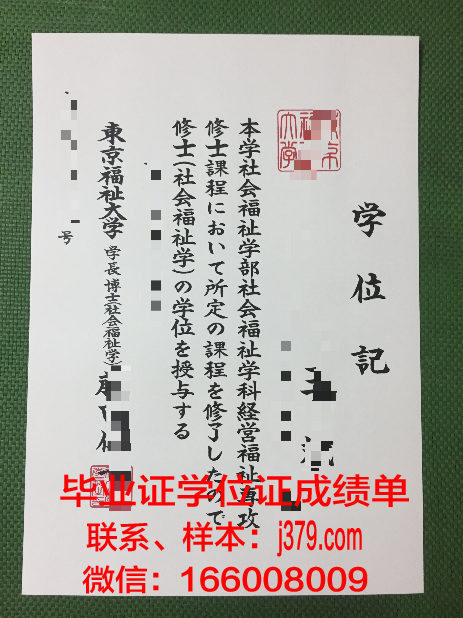 学位記
本学社会福祉学部社会福祉学科経営福祉専攻
修士課程において所定の課程を修了したので
修士(社会福祉学)の学位を授与する
東京福祉大学 学長 博士(社会福祉学)
号
毕业证学位证成绩单
联系、样本：j379.com
微信：166008009